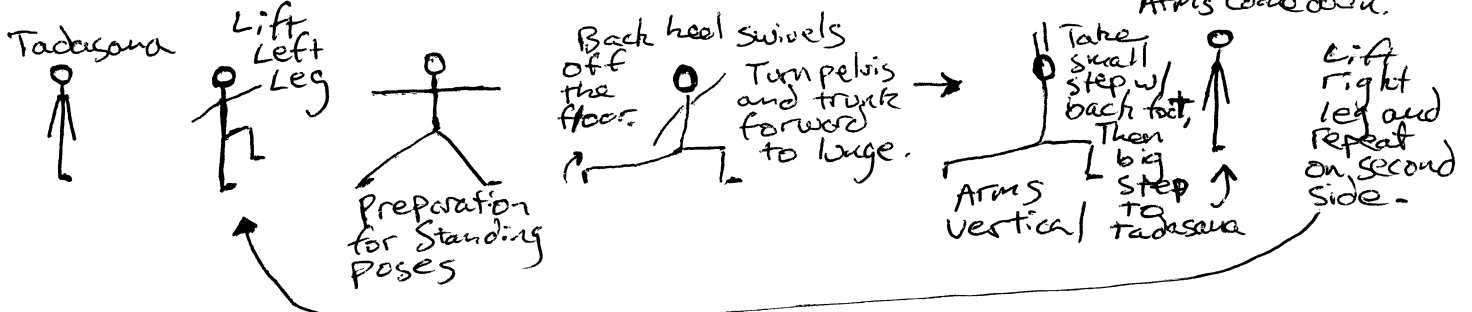 Tadasana
Lift
Left
Leg
Preparation
for Standing
poses
Back heel swivels
off
the
floor.
Turn pelvis
and trunk
forward
to lunge.
Arms
vertical
Take
small
step w/
back foot,
Then
big
step
to
Tadasana
Arms come down.
Lift
right
leg and
repeat
on second
side.